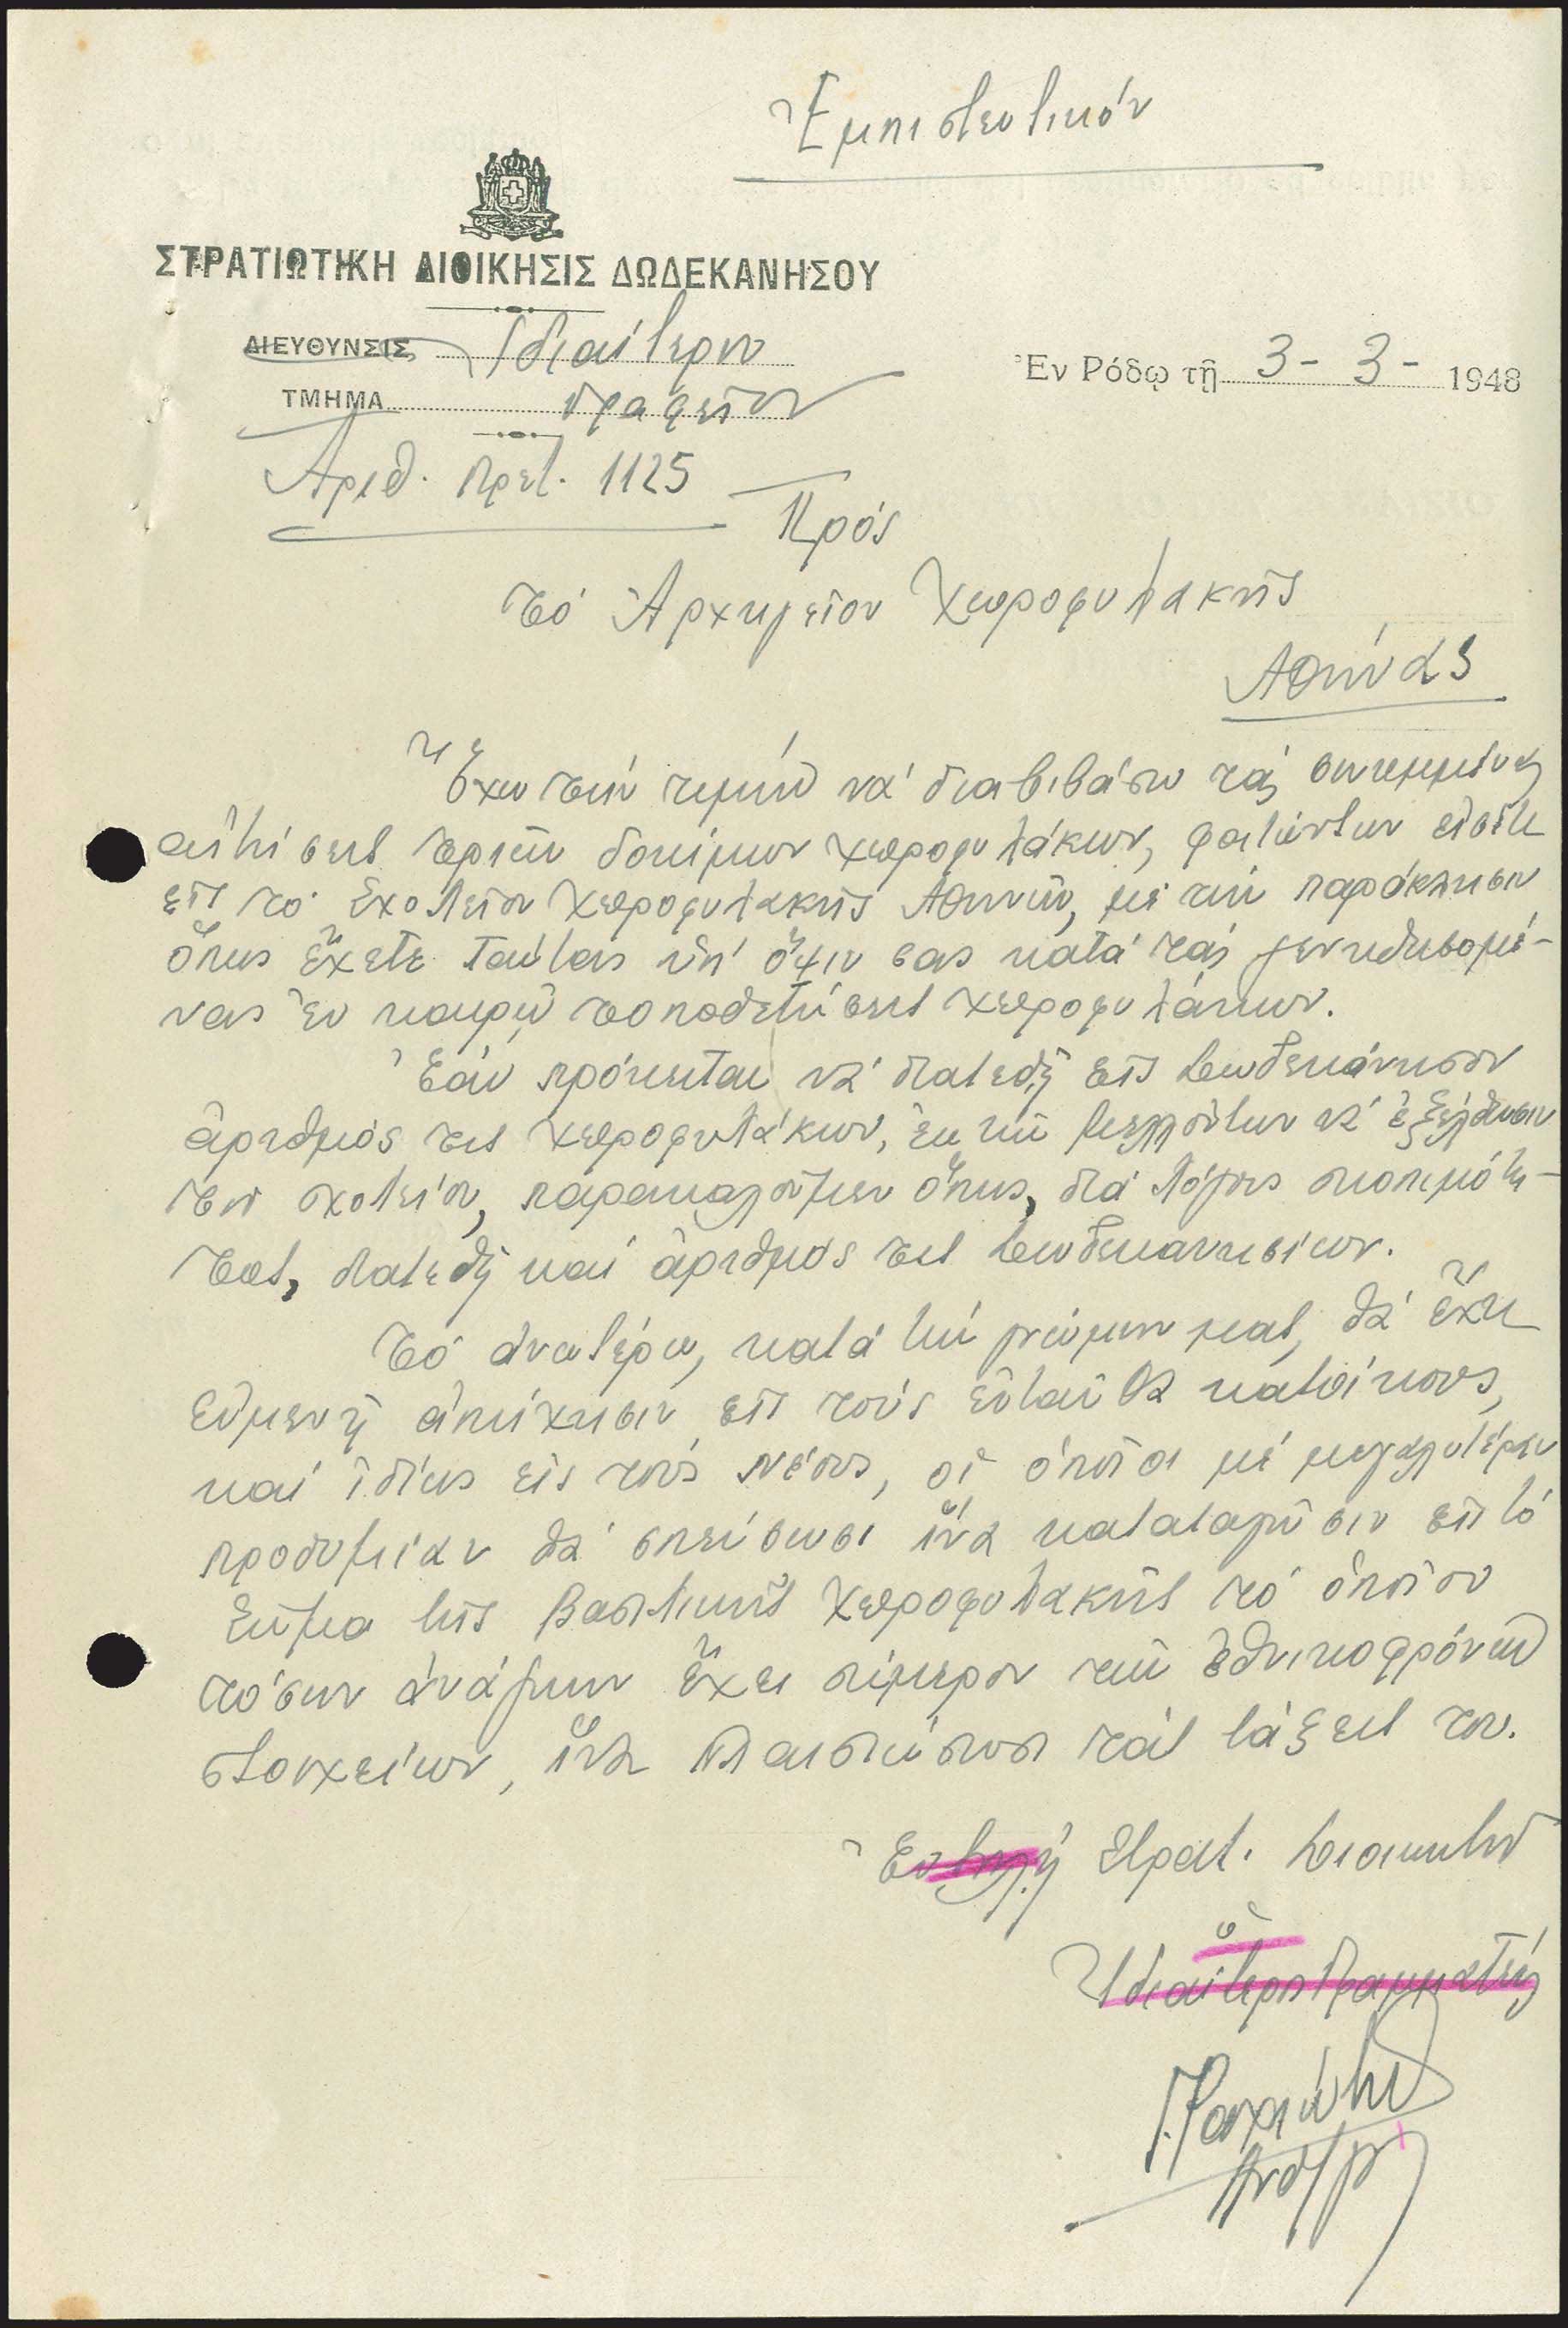 Ἐμπιστευτικόν
ΣΤΡΑΤΙΩΤΙΚΗ ΔΙΟΙΚΗΣΙΣ ΔΩΔΕΚΑΝΗΣΟΥ
ΔΙΕΥΘΥΝΣΙΣ Ἰδιαίτερον
ΤΜΗΜΑ Γραφεῖον
Ἐν Ρόδῳ τῇ 3-3-1948
Ἀριθ. Πρωτ. 1125
Πρός
Τό Ἀρχηγεῖον Χωροφυλακῆς
Ἀθήνας
Ἔχω τήν τιμήν νά διαβιβάσω τάς συνημμένας
αἰτήσεις τριῶν δοκίμων χωροφυλάκων, φοιτώντων εἰσέτι
εἰς τό Σχολεῖον Χωροφυλακῆς Ἀθηνῶν, μέ τήν παράκλησιν
ὅπως ἔχετε ταύτας ὑπ' ὄψιν σας κατά τάς γενηθησομέ-
νας ἐν καιρῷ τοποθετήσεις χωροφυλάκων.
Ἐάν πρόκειται νά διατεθῇ εἰς Δωδεκάνησον
ἀριθμός τις χωροφυλάκων, ἐκ τῶν μελλόντων νά ἐξέλθωσιν
τοῦ σχολείου, παρακαλοῦμεν ὅπως, διά λόγους σκοπιμότη-
τος, διατεθῇ καί ἀριθμός τις Δωδεκανησίων.
Τό ἀνωτέρω, κατά τήν γνώμην μας, θά ἔχῃ
εὐμενῆ ἀπήχησιν εἰς τούς ἐνταῦθα κατοίκους,
καί ἰδίως εἰς τούς νέους, οἱ ὁποῖοι μέ μεγαλυτέραν
προθυμίαν θά σπεύσωσι ἵνα καταταγῶσιν εἰς τό
Σῶμα τῆς Βασιλικῆς Χωροφυλακῆς τό ὁποῖον
τόσην ἀνάγκην ἔχει σήμερον τῶν ἐθνικοφρόνων
στοιχείων, ἵνα πλαισιώσωσι τάς τάξεις του.
Ἐντολῇ Στρατ. Διοικητοῦ
Ὁ
Ἰδιαίτερος Γραμματεύς